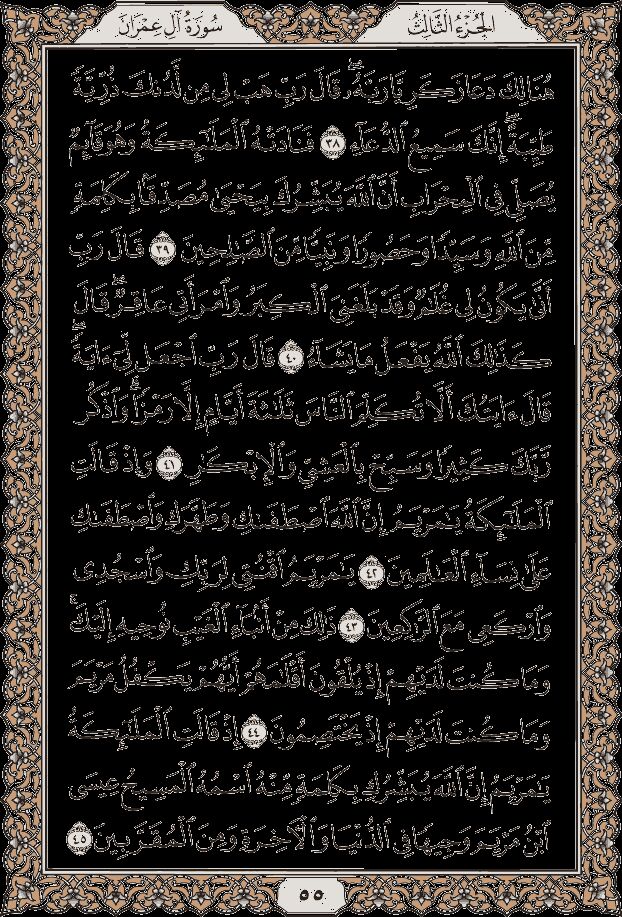 الجزء الثالث
سورة آل عمران
هُنَالِكَ دَعَا زَكَرِيَّا رَبَّهُۥۖ قَالَ رَبِّ هَبْ لِى مِن لَّدُنكَ ذُرِّيَّةً
طَيِّبَةًۖ إِنَّكَ سَمِيعُ ٱلدُّعَآءِ ٣٨ فَنَادَتْهُ ٱلْمَلَٰٓئِكَةُ وَهُوَ قَآئِمٌ
يُصَلِّى فِى ٱلْمِحْرَابِ أَنَّ ٱللَّهَ يُبَشِّرُكَ بِيَحْيَىٰ مُصَدِّقًۢا بِكَلِمَةٍ
مِّنَ ٱللَّهِ وَسَيِّدًا وَحَصُورًا وَنَبِيًّا مِّنَ ٱلصَّٰلِحِينَ ٣٩ قَالَ رَبِّ
أَنَّىٰ يَكُونُ لِى غُلَٰمٌ وَقَدْ بَلَغَنِىَ ٱلْكِبَرُ وَٱمْرَأَتِى عَاقِرٌۖ قَالَ
كَذَٰلِكَ ٱللَّهُ يَفْعَلُ مَا يَشَآءُ ٤٠ قَالَ رَبِّ ٱجْعَل لِّىٓ ءَايَةًۖ
قَالَ ءَايَتُكَ أَلَّا تُكَلِّمَ ٱلنَّاسَ ثَلَٰثَةَ أَيَّامٍ إِلَّا رَمْزًاۗ وَٱذْكُر
رَّبَّكَ كَثِيرًا وَسَبِّحْ بِٱلْعَشِىِّ وَٱلْإِبْكَٰرِ ٤١ وَإِذْ قَالَتِ
ٱلْمَلَٰٓئِكَةُ يَٰمَرْيَمُ إِنَّ ٱللَّهَ ٱصْطَفَىٰكِ وَطَهَّرَكِ وَٱصْطَفَىٰكِ
عَلَىٰ نِسَآءِ ٱلْعَٰلَمِينَ ٤٢ يَٰمَرْيَمُ ٱقْنُتِى لِرَبِّكِ وَٱسْجُدِى
وَٱرْكَعِى مَعَ ٱلرَّٰكِعِينَ ٤٣ ذَٰلِكَ مِنْ أَنۢبَآءِ ٱلْغَيْبِ نُوحِيهِ إِلَيْكَۚ
وَمَا كُنتَ لَدَيْهِمْ إِذْ يُلْقُونَ أَقْلَٰمَهُمْ أَيُّهُمْ يَكْفُلُ مَرْيَمَ
وَمَا كُنتَ لَدَيْهِمْ إِذْ يَخْتَصِمُونَ ٤٤ إِذْ قَالَتِ ٱلْمَلَٰٓئِكَةُ
يَٰمَرْيَمُ إِنَّ ٱللَّهَ يُبَشِّرُكِ بِكَلِمَةٍ مِّنْهُ ٱسْمُهُ ٱلْمَسِيحُ عِيسَى
ٱبْنُ مَرْيَمَ وَجِيهًا فِى ٱلدُّنْيَا وَٱلْءَاخِرَةِ وَمِنَ ٱلْمُقَرَّبِينَ ٤٥
٥٥